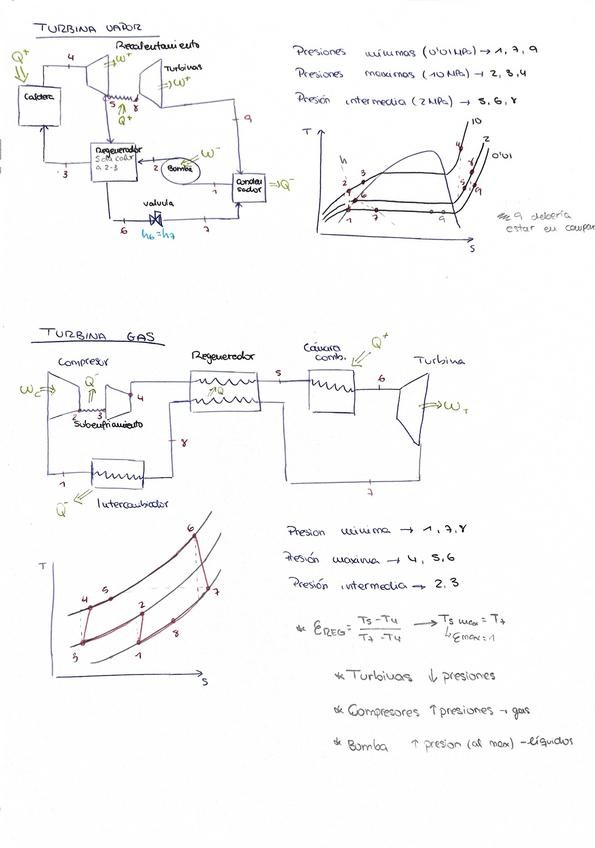 TURBINA VAPOR
Recalentamiento
Q+
4
W+
Turbinas
W+
Caldera
5
8
Q+
9
Regenerador
Solo calor
a 2-3
3
2
Bomba
W-
1
Conden
sador
Q-
válvula
6
h6=h7
7
Presiones mínimas (0'01MPa) → 1, 7, 9
Presiones maximas (10 MPa) → 2, 3, 4
Presión intermedia (2 MPa) → 5, 6, 8
T
10
2
0'01
h
4
2
3
8
6
5
9
1
7
9
S
* 9 debería
estar en campan
TURBINA GAS
Compresor
Wc
Q-
2
3
4
Subenfriamiento
Regenerador
Q
5
Cámara
comb.
Q+
6
Turbina
WT
8
1
Q-
Intercambiador
7
T
6
4
5
2
7
8
3
1
S
Presion mínima → 1, 7, 8
Presión maxima → 4, 5, 6
Presión intermedia → 2, 3
* εREG = T5-T4 / T7-T4 → T5 max = T7
εmax=1
* Turbinas ↓ presiones
* Compresores ↑ presiones → gas
* Bomba ↑ presion (al max) - líquidos